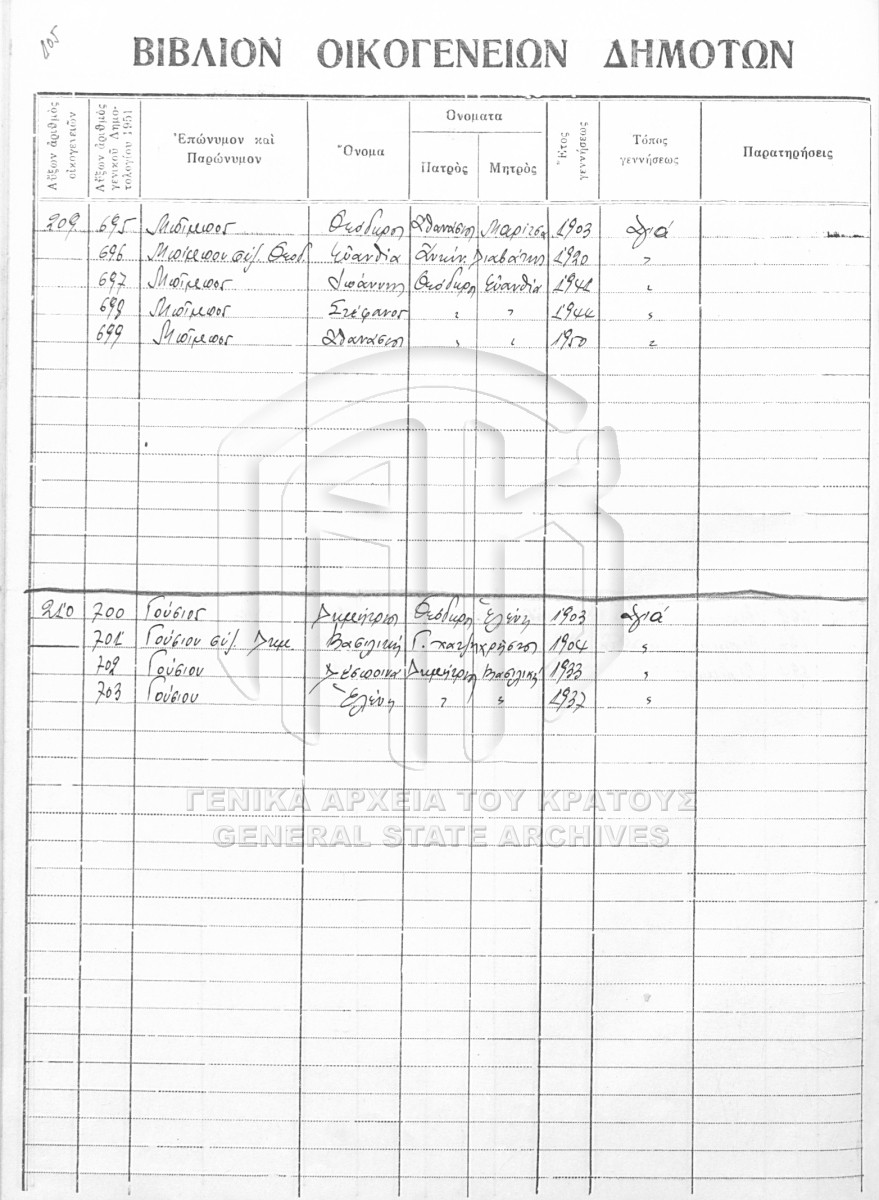 105
ΒΙΒΛΙΟΝ ΟΙΚΟΓΕΝΕΙΩΝ ΔΗΜΟΤΩΝ
Αὔξων ἀριθμὸς οἰκογενειῶν
Αὔξων ἀριθμὸς γενικοῦ Δημοτολογίου 1951
Ἐπώνυμον καὶ Παρώνυμον
Ὄνομα
Ὀνοματα
Πατρὸς
Μητρὸς
Ἔτος γεννήσεως
Τόπος γεννήσεως
Παρατηρήσεις
209 695 Μπίμπος Θεόδωρος Ἀθανάσιος Μαρίτσα 1903 Ἁγιά
696 Μπίμπου συζ. Θεοδ. Εὐανθία Διαβάτης 1920 〃
697 Μπίμπος Ἰωάννης Θεόδωρος Εὐανθία 1941 〃
698 Μπίμπος Στέφανος 〃 〃 1944 〃
699 Μπίμπος Ἀθανάσιος 〃 〃 1950 〃
210 700 Γούσιος Δημήτριος Θεόδωρος Ἑλένη 1903 Ἁγιά
701 Γούσιου συζ. Δημ. Βασιλική Γ. Χατζηχρήστος 1904 〃
702 Γούσιου Δέσποινα Δημήτριος Βασιλική 1933 〃
703 Γούσιου Ἑλένη 〃 〃 1937 〃
ΓΕΝΙΚΑ ΑΡΧΕΙΑ ΤΟΥ ΚΡΑΤΟΥΣ
GENERAL STATE ARCHIVES